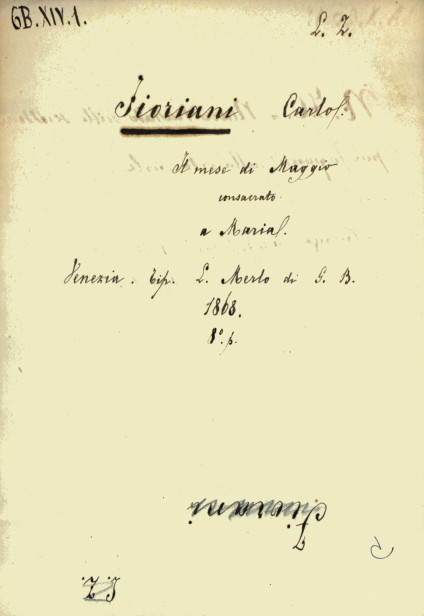 GB.XIV.1.
L. Z.
Fioriani Carlo.
Il mese di Maggio
consacrato
a Maria.
Venezia. Tip. L. Merlo di G. B.
1868.
8º. p.